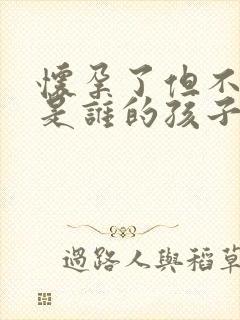 懷孕了但不
是誰的孩子
過路人與稻草